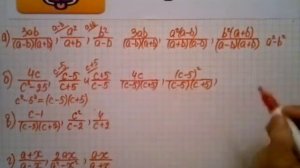 а) 3ab/(a-b)(a+b), a-b\ a²/(a+b), a+b\ b²/(a-b) 3ab/(a-b)(a+b), a²(a-b)/(a+b)(a-b), b²(a+b)/(a-b)(a+b) a²-b²
б) 4c/(c²-25), c-5\ (c-5)/(c+5), c+5 4c/(c-5)(c+5), (c-5)²/(c-5)(c+5),
c²-5²=(c-5)(c+5)
(c-1)/(c-5)(c+5), c²/(c-2), 4/(c+2)
(a+x)/(a-x), 2ax/(a²-x²), (a-x)/(a+x)